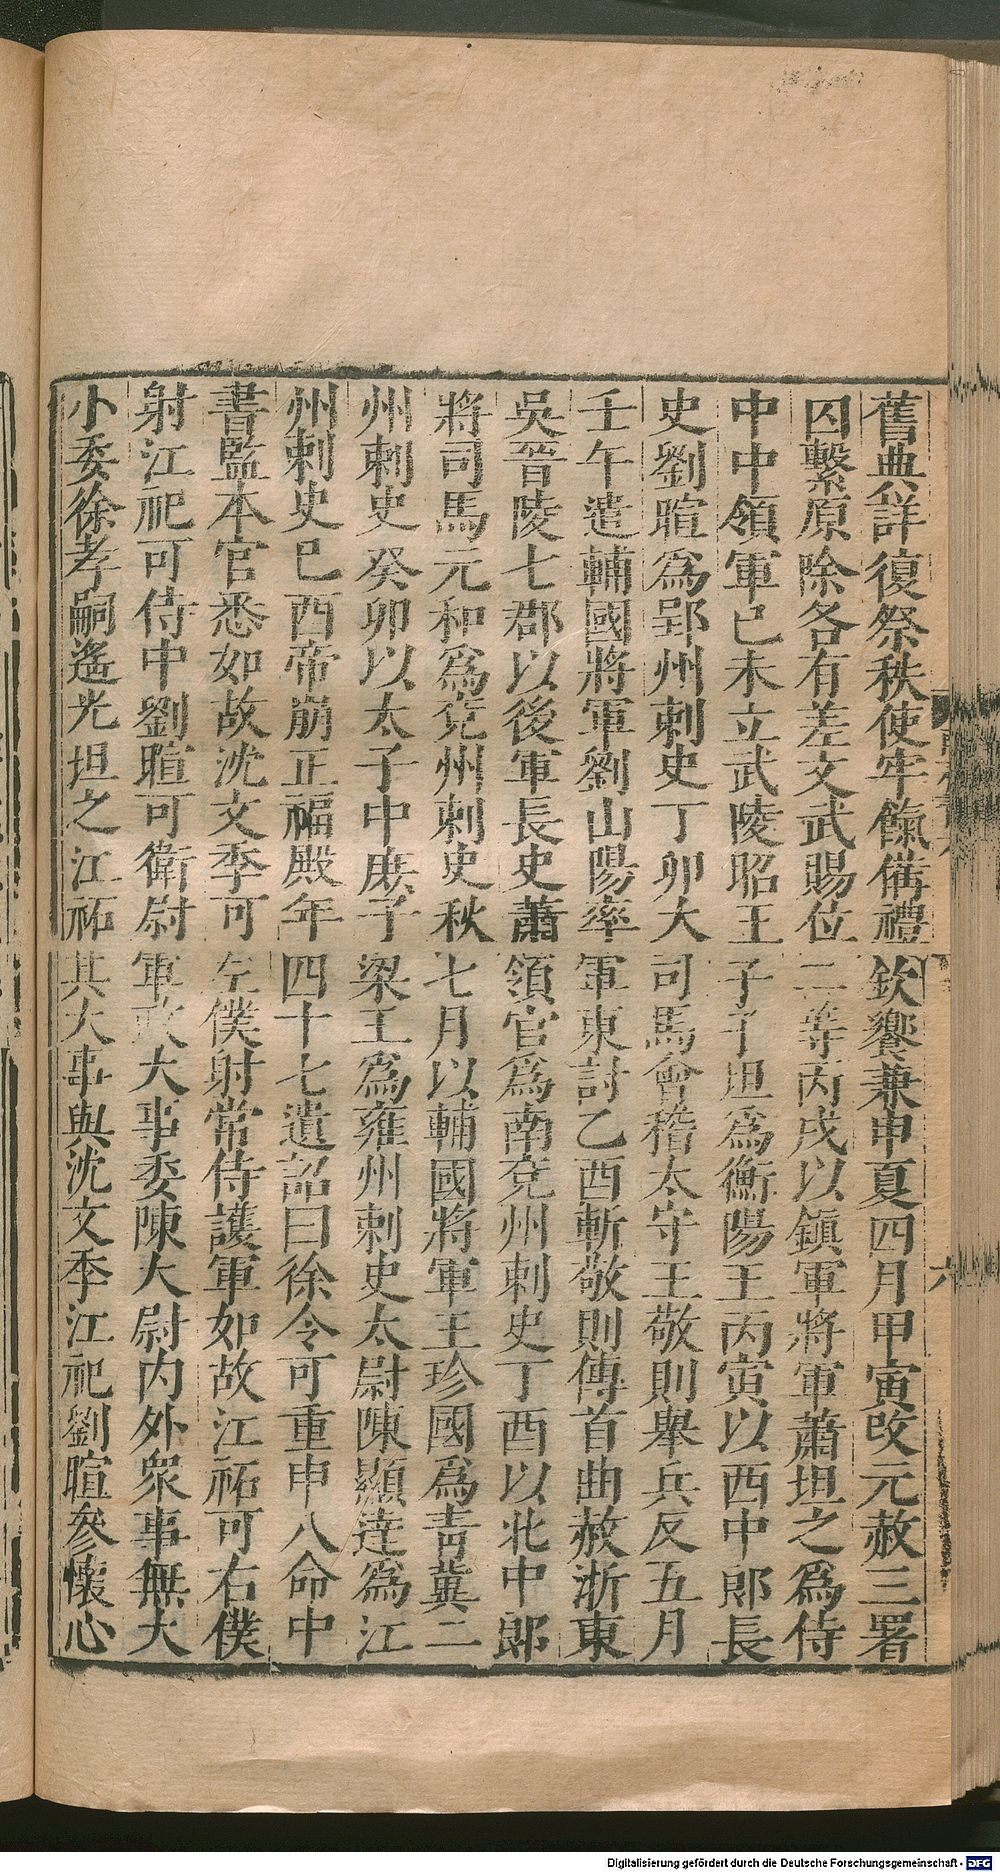 舊典詳復祭秩使牢餼備禮欽饗兼申夏四月甲寅改元赦三署
囚繫原除各有差文武賜位二等丙戌以鎮軍將軍蕭坦之爲侍
中中領軍已未立武陵昭王子子坦爲衡陽王丙寅以西中郎長
史劉暄爲郢州刺史丁卯大司馬會稽太守王敬則舉兵反五月
壬午遣輔國將軍劉山陽率軍東討乙酉斬敬則傳首曲赦浙東
吳晉陵七郡以後軍長史蕭領官爲南兗州刺史丁酉以北中郎
將司馬元和爲兗州刺史秋七月以輔國將軍王珍國爲靑冀二
州刺史癸卯以太子中庶子梁王爲雍州刺史太尉陳顯達爲江
州刺史巳酉帝崩正福殿年四十七遺詔曰徐令可重申八命中
書監本官悉如故沈文季可左僕射常侍護軍如故江祏可右僕
射江祀可侍中劉暄可衛尉軍政大事委陳大尉内外衆事無大
小委徐孝嗣遙光坦之江祏其大事與沈文季江祀劉暄參懷心
六
Digitalisierung gefördert durch die Deutsche Forschungsgemeinschaft - DFG